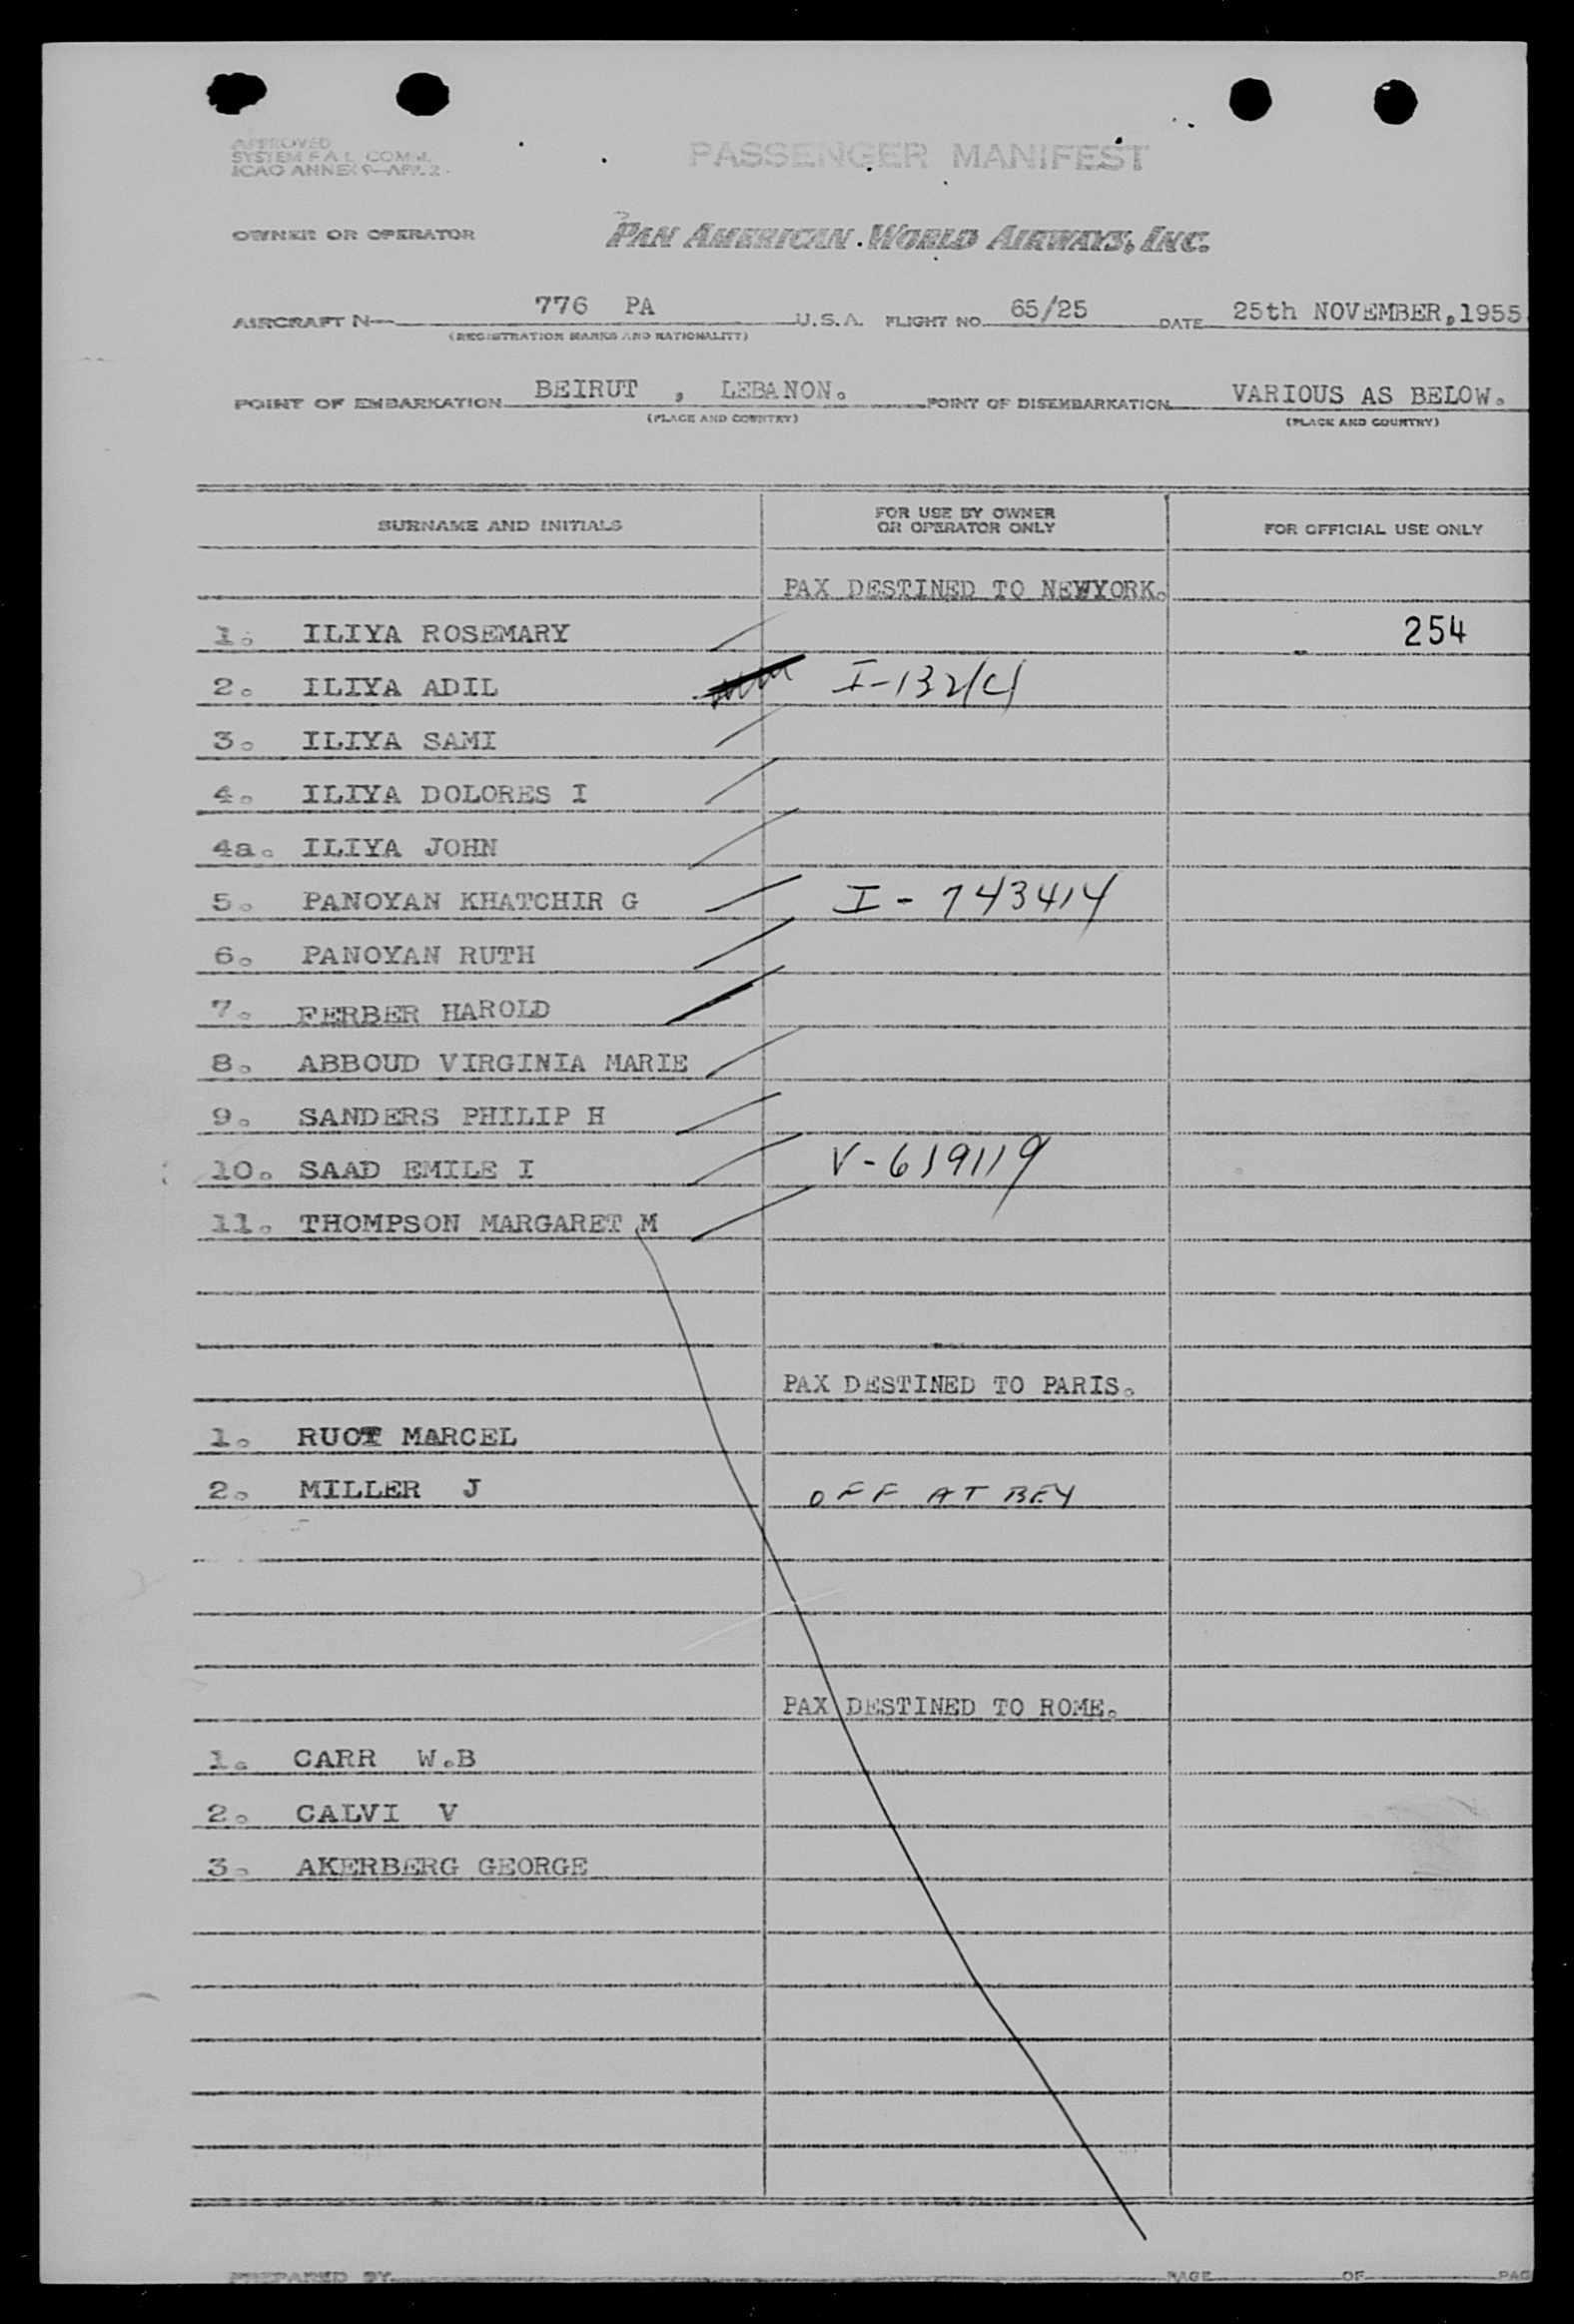 APPROVED
SYSTEM F A L COMM.
ICAO ANNEX 9—APP. 2
PASSENGER MANIFEST
OWNER OR OPERATOR PAN AMERICAN WORLD AIRWAYS, INC.
AIRCRAFT N— 776 PA U.S.A. FLIGHT NO. 65/25 DATE 25th NOVEMBER,1955
(REGISTRATION MARKS AND NATIONALITY)
POINT OF EMBARKATION BEIRUT , LEBANON. POINT OF DISEMBARKATION VARIOUS AS BELOW.
(PLACE AND COUNTRY) (PLACE AND COUNTRY)
SURNAME AND INITIALS FOR USE BY OWNER OR OPERATOR ONLY FOR OFFICIAL USE ONLY
PAX DESTINED TO NEWYORK.
1. ILIYA ROSEMARY 254
2. ILIYA ADIL
3. ILIYA SAMI
4. ILIYA DOLORES I
4a. ILIYA JOHN
5. PANOYAN KHATCHIR G I-743414
6. PANOYAN RUTH
7. FERBER HAROLD
8. ABBOUD VIRGINIA MARIE
9. SANDERS PHILIP H
10. SAAD EMILE I V-619119
11. THOMPSON MARGARET M
PAX DESTINED TO PARIS.
1. RUOT MARCEL
2. MILLER J OFF AT BEY
PAX DESTINED TO ROME.
1. CARR W.B
2. CALVI V
3. AKERBERG GEORGE
PREPARED BY PAGE OF PAG